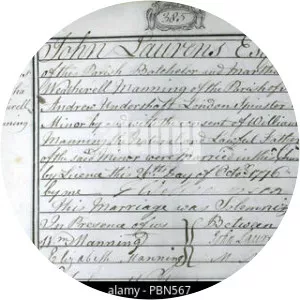 385
John Laurens Es
of this Parish Batchelor and Mar
Weatherell Manning of the Parish of
Andrew Undershaft London Spinster
Minor by and with consent of William
Manning the Natural and Lawful Father
of the said Minor were Married in this
by Licence this 26th Day of Octr 1776
by me
This Marriage was Solemniz
In Presence of us Between
Wm Manning John Laur
Elizabeth Manning M
alamy - PBN567